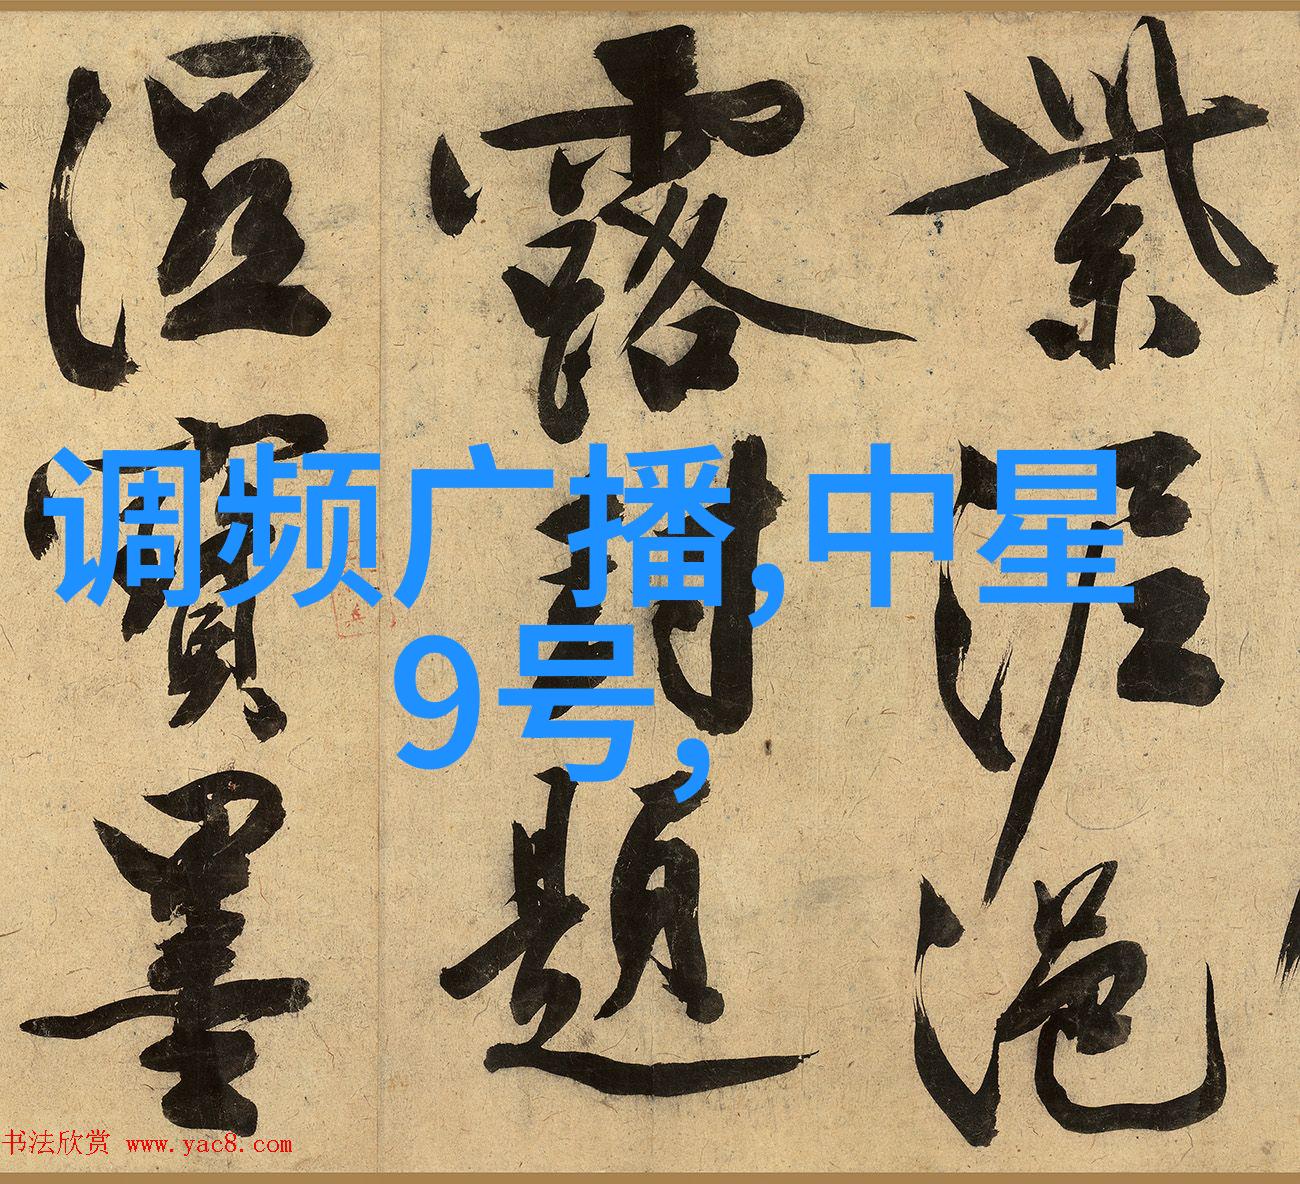 紫泥浥
露封題
濕寶墨
调频广播,中星
9号,
书法欣赏 www.yac8.com